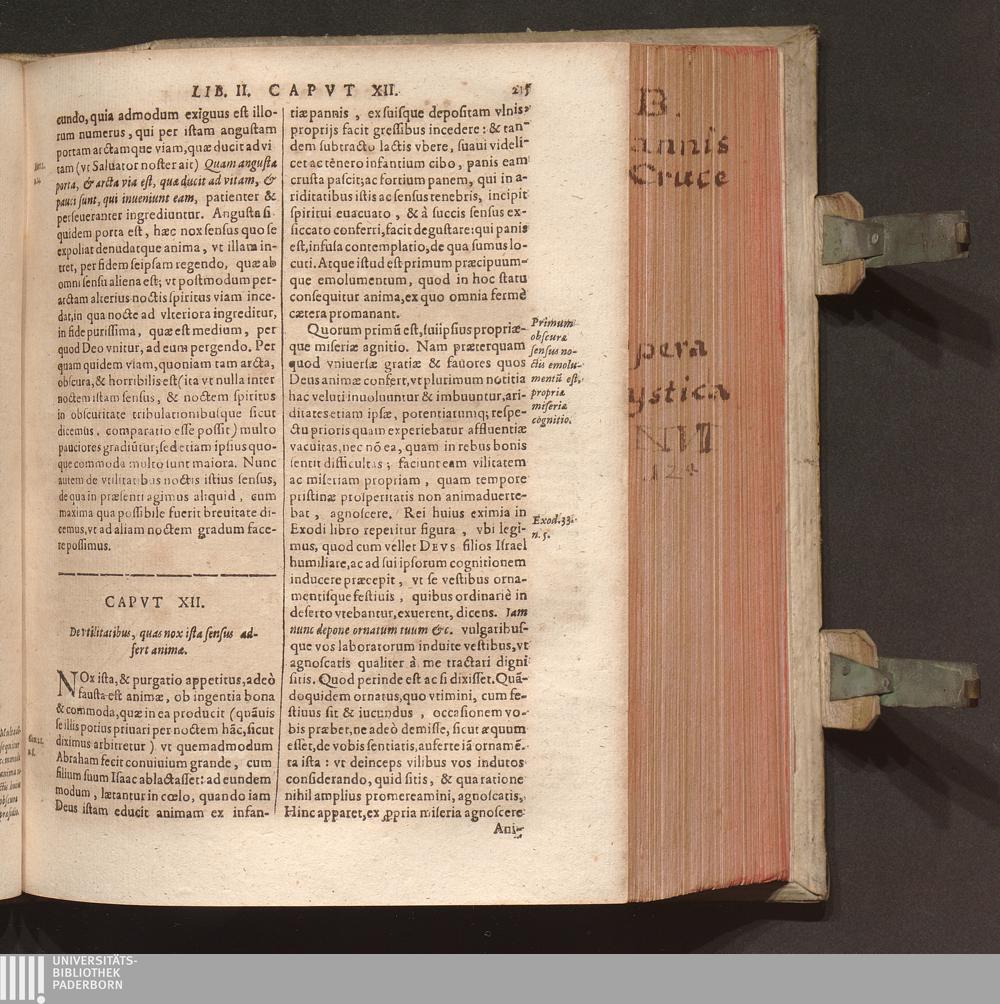 LIB. II. CAPVT XII. 215
eundo, quia admodum exiguus est illo-
rum numerus, qui per istam angustam
portam arctamque viam, quæ ducit ad vi
tam (vt Saluator noster ait) Quam angusta
porta, & arcta via est, quæ ducit ad vitam, &
pauci sunt, qui inueniunt eam, patienter &
perseueranter ingrediuntur. Angusta si
quidem porta est, hæc nox sensus quo se
expoliat denudatque anima, vt illam in-
tret, per fidem seipsam regendo, quæ ab
omni sensu aliena est; vt postmodum per
arctam alterius noctis spiritus viam ince-
dat, in qua nocte ad vlteriora ingreditur,
in fide purissima, quæ est medium, per
quod Deo vnitur, ad eum pergendo. Per
quam quidem viam, quoniam tam arcta,
obscura, & horribilis est (ita vt nulla inter
noctem istam sensus, & noctem spiritus
in obscuritate tribulationibusque sicut
dicemus, comparatio esse possit) multo
pauciores gradiūtur; sed etiam ipsius quo-
que commoda multo sunt maiora. Nunc
autem de vtilitatibus noctis istius sensus,
de qua in præsenti agimus aliquid, cum
maxima qua possibile fuerit breuitate di-
cemus, vt ad aliam noctem gradum face-
re possimus.
CAPVT XII.
De vtilitatibus, quas nox ista sensus ad-
fert animæ.
NOx ista, & purgatio appetitus, adeò
fausta est animæ, ob ingentia bona
& commoda, quæ in ea producit (quāuis
se illis potius priuari per noctem hāc, sicut
diximus arbitretur) vt quemadmodum
Abraham fecit conuiuium grande, cum
filium suum Isaac ablactasset: ad eundem
modum, lætantur in cœlo, quando iam
Deus istam educit animam ex infan-
tiæ pannis, ex suisque depositam vlnis,
proprijs facit gressibus incedere: & tan
dem subtracto lactis vbere, suaui videli-
cet ac tenero infantium cibo, panis eam
crusta pascit; ac fortium panem, qui in a-
riditatibus istis ac sensus tenebris, incipit
spiritui euacuato, & à succis sensus ex-
siccato conferri, facit degustare: qui panis
est, infusa contemplatio, de qua sumus lo-
cuti. Atque istud est primum præcipuum-
que emolumentum, quod in hoc statu
consequitur anima, ex quo omnia fermè
cætera promanant.
Quorum primū est, sui ipsius propriæ-
que miseriæ agnitio. Nam præterquam
quod vniuersæ gratiæ & fauores quos
Deus animæ confert, vt plurimum notitia
hac veluti inuoluuntur & imbuuntur, ari-
ditates etiam ipsæ, potentiarumq; respe-
ctu prioris quam experiebatur affluentiæ
vacuitas, nec nō ea, quam in rebus bonis
sentit difficultas; faciunt eam vilitatem
ac miseriam propriam, quam tempore
pristinæ prosperitatis non animaduerte-
bat, agnoscere. Rei huius eximia in
Exodi libro reperitur figura, vbi legi-
mus, quod cum vellet DEVS filios Israel
humiliare, ac ad sui ipsorum cognitionem
inducere præcepit, vt se vestibus orna-
mentisque festiuis, quibus ordinariè in
deserto vtebantur, exuerent, dicens. Iam
nunc depone ornatum tuum &c. vulgaribus-
que vos laboratorum induite vestibus, vt
agnoscatis qualiter à me tractari digni
sitis. Quod perinde est ac si dixisset. Quā-
doquidem ornatus, quo vtimini, cum fe-
stiuus sit & iucundus, occasionem vo-
bis præbet, ne adeò demisse, sicut æquum
esset, de vobis sentiatis, auferte iā ornamē-
ta ista: vt deinceps vilibus vos indutos
considerando, quid sitis, & qua ratione
nihil amplius promereamini, agnoscatis,
Hinc apparet, ex ꝓpria miseria agnoscere
Ani-
Primum
obscuræ
sensus no-
ctis emolu-
mentū est,
propriæ
miseriæ
cognitio.
Exod. 33.
n. 5.
B.
annis
Cruce
pera
ystica
UNIVERSITÄTS-
BIBLIOTHEK
PADERBORN